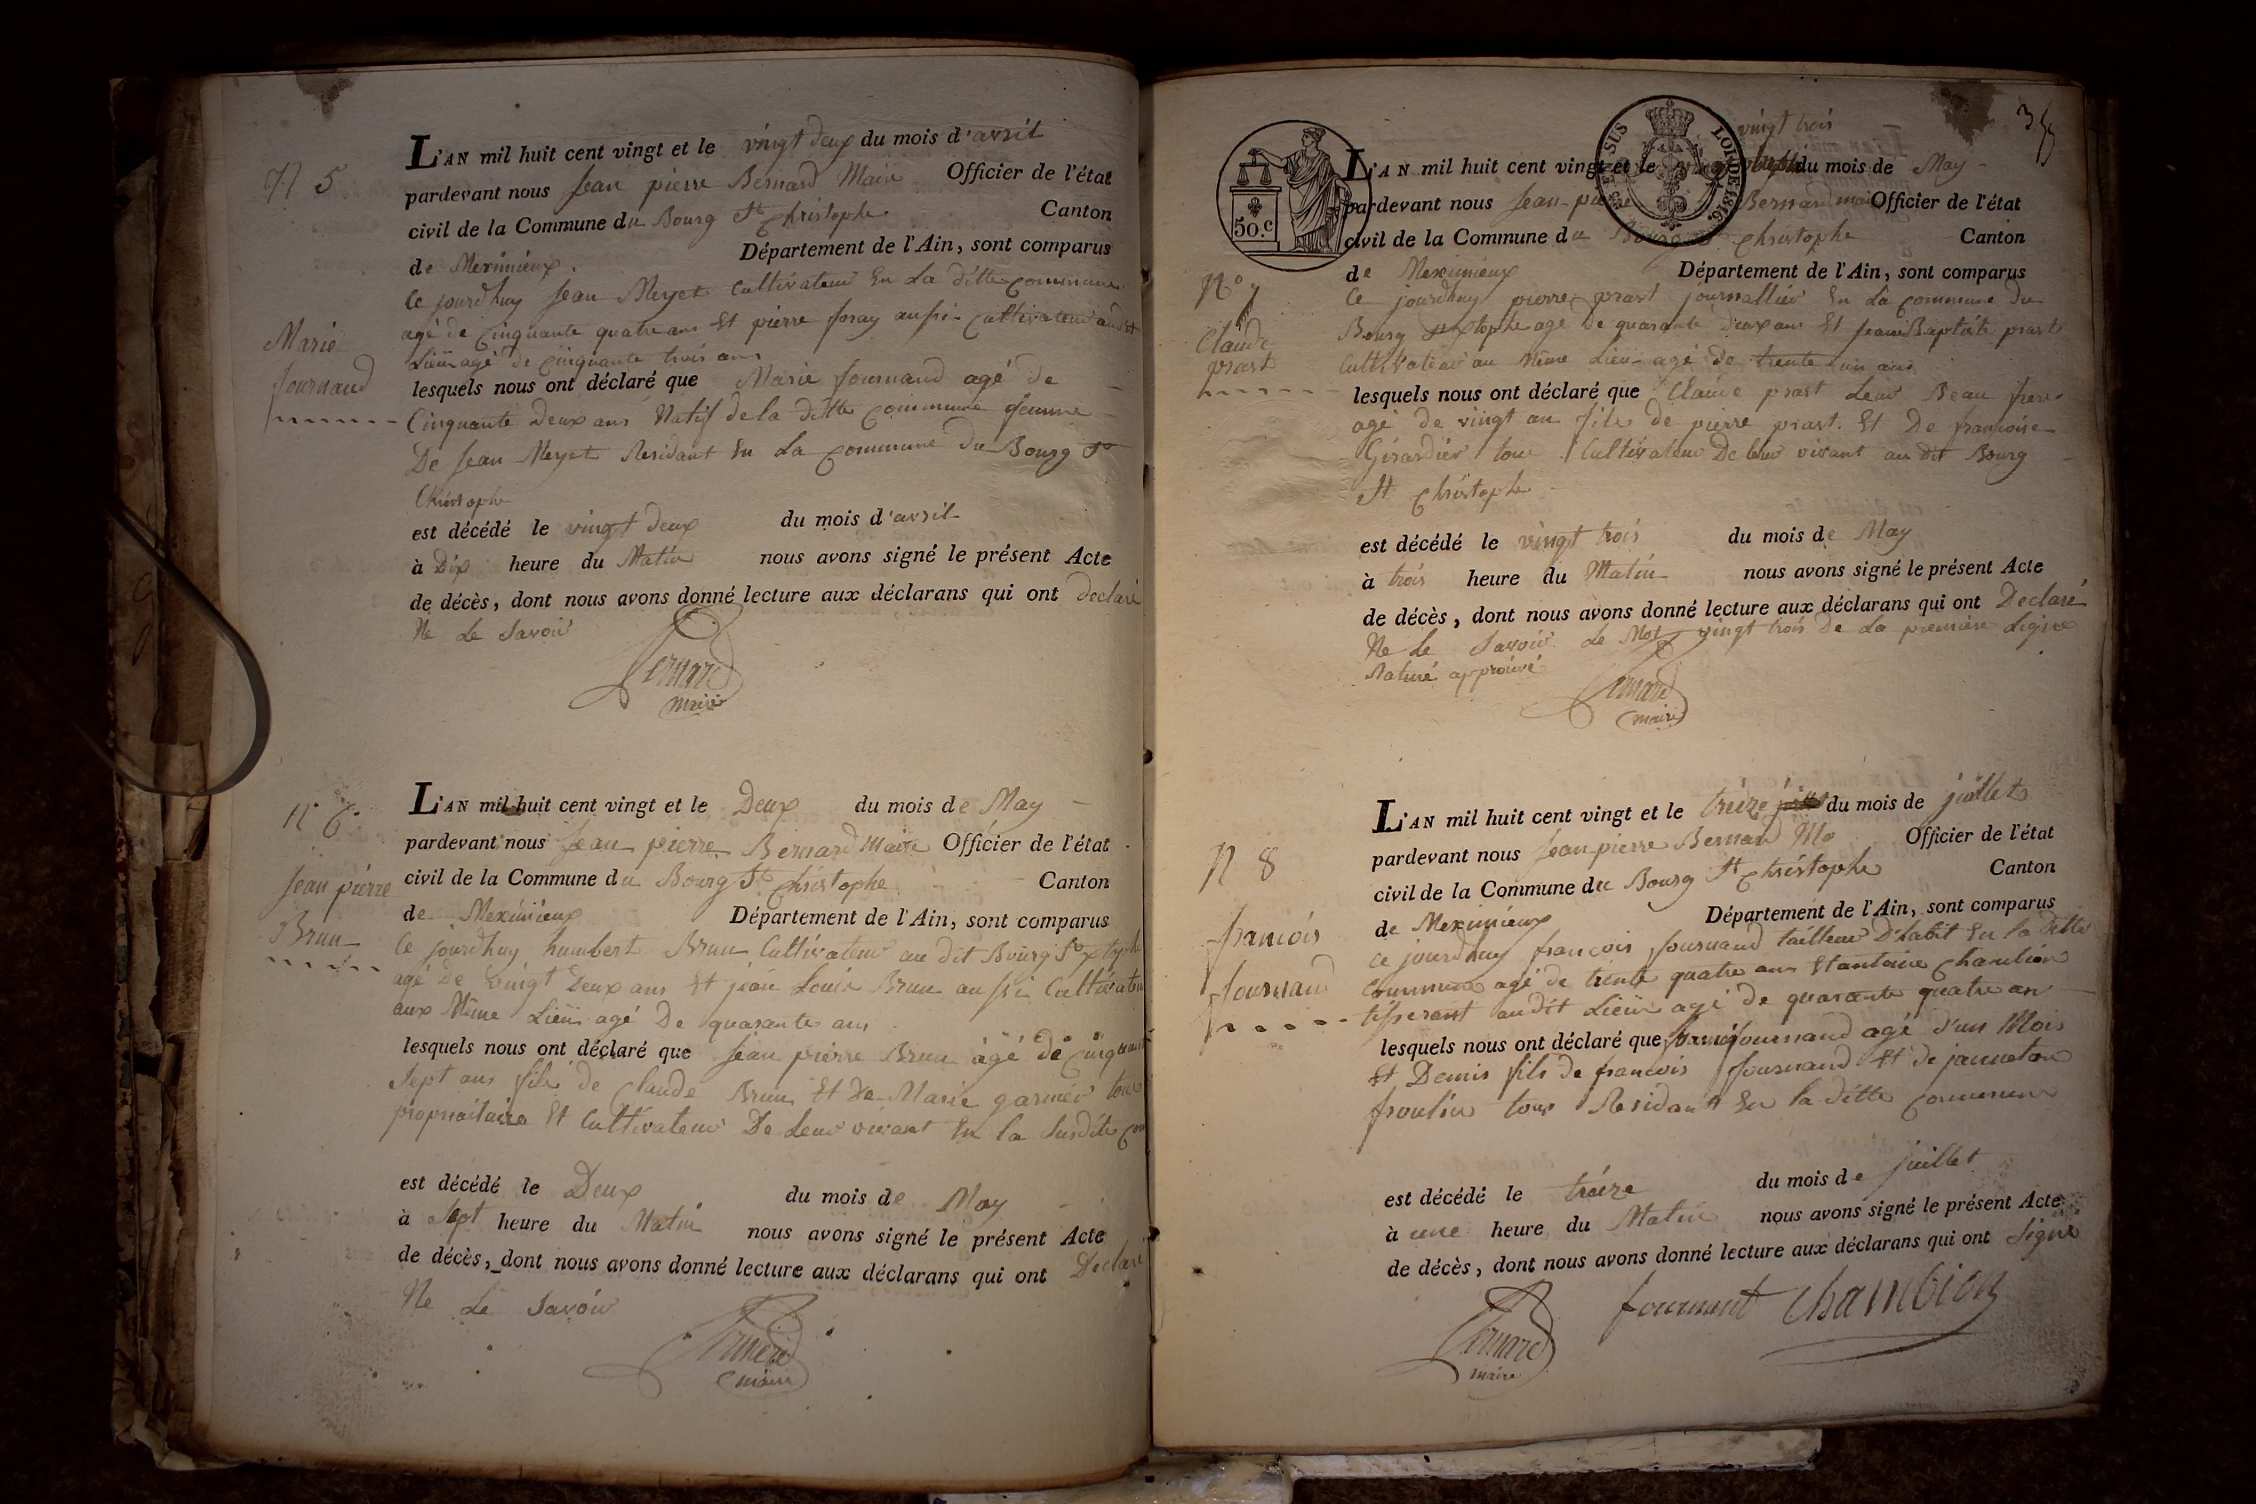 N 5
Marie
fournand
L'AN mil huit cent vingt et le vingt deux du mois d'avril
pardevant nous Jean pierre Bernard Maire Officier de l'état
civil de la Commune du Bourg St Christophe Canton
de Meximieux. Département de l'Ain, sont comparus
Ce jourdhuy Jean Meyet Cultivateur En La ditte commune
agé de Cinquante quatre ans Et pierre aussi Cultivateur
Lieu agé de cinquante trois ans
lesquels nous ont déclaré que Marie fournand agé de
Cinquante Deux ans Natif de la ditte Commune femme
De Jean Meyet Residant En La Commune Du Bourg St
Christophe
est décédé le vingt deux du mois d'avril
à Dix heure du Matin nous avons signé le présent Acte
de décès, dont nous avons donné lecture aux déclarans qui ont declaré
Ne Le Savoir
Bernard
maire
n° 6.
Jean pierre
Brun
L'AN mil huit cent vingt et le Deux du mois de May
pardevant nous Jean pierre Bernard Maire Officier de l'état
civil de la Commune du Bourg St Christophe Canton
de Meximieux Département de l'Ain, sont comparus
Ce jourdhuy humbert Brun Cultivateur au dit Bourg St
agé De vingt Deux ans Et jean Louis Brun aussi Cultivateur
aux Même Lieu agé De quarante ans
lesquels nous ont déclaré que Jean pierre Brun agé de Cinquante
Sept ans fils de Claude Brun Et De Marie garnier tous
propriétaire Et Cultivateur De Leur vivant En la Susdite
est décédé le Deux du mois de May
à Sept heure du Matin nous avons signé le présent Acte
de décès, dont nous avons donné lecture aux déclarans qui ont Declaré
Ne Le Savoir
Bernard
maire
35
50.c
SUS LOI DE 1816.
N° 7
Claude
prast
vingt trois
L'AN mil huit cent vingt et le du mois de May
pardevant nous Jean-pierre Bernard maire Officier de l'état
civil de la Commune du Bourg St Christophe Canton
de Meximieux Département de l'Ain, sont comparus
Ce jourdhuy pierre prast journallier En La Commune Du
Bourg St xtophe agé De quarante Deux ans Et Jean Baptiste prast
Cultivateur au Même Lieu agé de trente un ans
lesquels nous ont déclaré que Claude prast Leur Beau frere
agé de vingt an fils de pierre prast. Et De francoise
Girardier tous Cultivateur De leur vivant au dit Bourg
St Christophe
est décédé le vingt trois du mois de May
à trois heure du Matin nous avons signé le présent Acte
de décès, dont nous avons donné lecture aux déclarans qui ont Declaré
Ne Le Savoir Le Mot vingt trois De La premiere Ligne
Raturé approuvé
Bernard
maire
N 8
francois
fournand
L'AN mil huit cent vingt et le treize du mois de juillet
pardevant nous Jean pierre Bernard Me Officier de l'état
civil de la Commune du Bourg St Christophe Canton
de Meximieux Département de l'Ain, sont comparus
Ce jourdhuy francois fournand tailleur D'habit En La Ditte
Commune agé de trente quatre ans Et antoine Chambion
tisserant audit Lieu agé de quarante quatre an
lesquels nous ont déclaré que fournand agé d'un Mois
Et Demis fils de francois fournand Et de janneton
froulin tous Residant En la Ditte Commune
est décédé le treize du mois de juillet
à une heure du Matin nous avons signé le présent Acte
de décès, dont nous avons donné lecture aux déclarans qui ont Signé
fournant Chambion
Bernard
maire